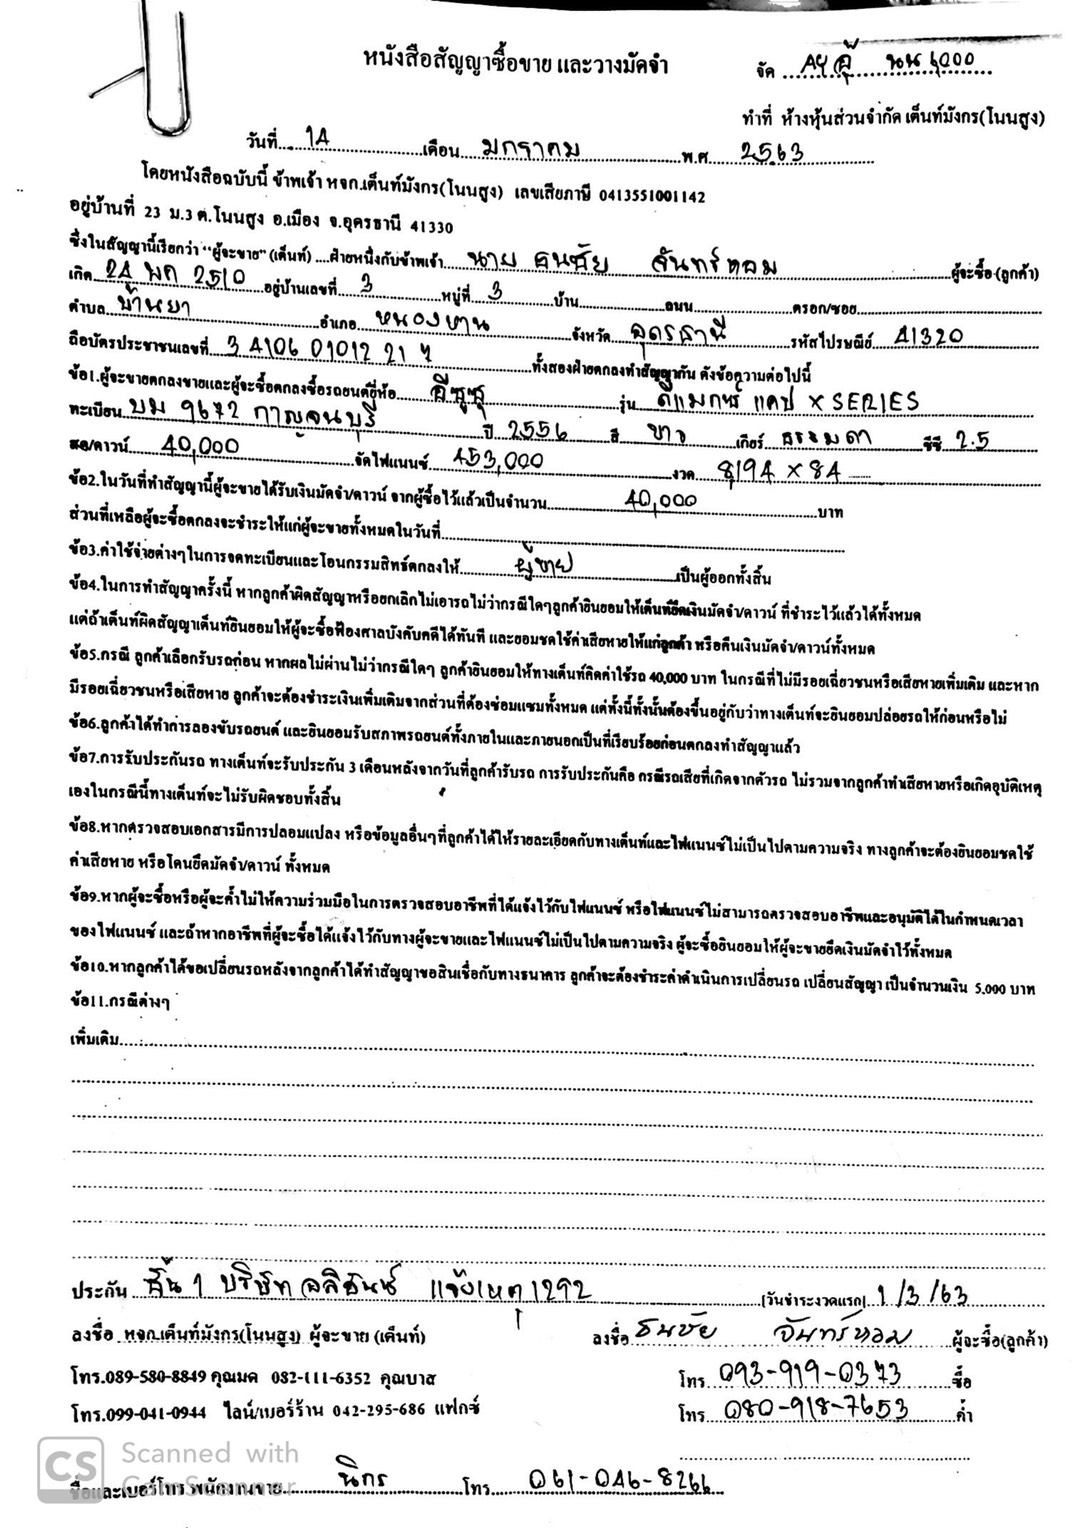 หนังสือสัญญาซื้อขาย และวางมัดจำ
จัด AY
ทำที่ ห้างหุ้นส่วนจำกัด เต็นท์มังกร(โนนสูง)
วันที่ 14 เดือน มกราคม พ.ศ 2563
โดยหนังสือฉบับนี้ ข้าพเจ้า หจก.เต็นท์มังกร(โนนสูง) เลขเสียภาษี 0413551001142
อยู่บ้านที่ 23 ม.3 ต.โนนสูง อ.เมือง จ.อุดรธานี 41330
ซึ่งในสัญญานี้เรียกว่า "ผู้จะขาย" (เต็นท์) ....ฝ่ายหนึ่งกับข้าพเจ้า นาย ธนชัย จันทร์หอม ผู้จะซื้อ (ลูกค้า)
เกิด 24 พค 2510 อยู่บ้านเลขที่ 3 หมู่ที่ 3 บ้าน ถนน ตรอก/ซอย
ตำบล บ้านยา อำเภอ หนองหาน จังหวัด อุดรธานี รหัสไปรษณีย์ 41320
ถือบัตรประชาชนเลขที่ 3 4106 01012 21 7 ทั้งสองฝ่ายตกลงทำสัญญากัน ดังข้อความต่อไปนี้
ข้อ1.ผู้จะขายตกลงขายและผู้จะซื้อตกลงซื้อรถยนต์ยี่ห้อ อีซูซุ รุ่น ดีแมกซ์ แคป X SERIES
ทะเบียน บม 9672 กาญจนบุรี ปี 2556 สี ขาว เกียร์ ธรรมดา ซีซี 2.5
สด/ดาวน์ 40,000 จัดไฟแนนซ์ 453,000 งวด 8,194 X 84
ข้อ2.ในวันที่ทำสัญญานี้ผู้จะขายได้รับเงินมัดจำ/ดาวน์ จากผู้ซื้อไว้แล้วเป็นจำนวน 40,000 บาท
ส่วนที่เหลือผู้จะซื้อตกลงจะชำระให้แก่ผู้จะขายทั้งหมดในวันที่
ข้อ3.ค่าใช้จ่ายต่างๆในการจดทะเบียนและโอนกรรมสิทธ์ตกลงให้ ผู้ขาย เป็นผู้ออกทั้งสิ้น
ข้อ4.ในการทำสัญญาครั้งนี้ หากลูกค้าผิดสัญญาหรือยกเลิกไม่เอารถไม่ว่ากรณีใดๆลูกค้ายินยอมให้เต็นท์ยึดเงินมัดจำ/ดาวน์ ที่ชำระไว้แล้วได้ทั้งหมด
แต่ถ้าเต็นท์ผิดสัญญาเต็นท์ยินยอมให้ผู้จะซื้อฟ้องศาลบังคับคดีได้ทันที และยอมชดใช้ค่าเสียหายให้แก่ลูกค้า หรือคืนเงินมัดจำ/ดาวน์ทั้งหมด
ข้อ5.กรณี ลูกค้าเลือกรับรถก่อน หากผลไม่ผ่านไม่ว่ากรณีใดๆ ลูกค้ายินยอมให้ทางเต็นท์คิดค่าใช้รถ 40,000 บาท ในกรณีที่ไม่มีรอยเฉี่ยวชนหรือเสียหายเพิ่มเติม และหาก
มีรอยเฉี่ยวชนหรือเสียหาย ลูกค้าจะต้องชำระเงินเพิ่มเติมจากส่วนที่ต้องซ่อมแซมทั้งหมด แต่ทั้งนี้ทั้งนั้นต้องขึ้นอยู่กับว่าทางเต็นท์จะยินยอมปล่อยรถให้ก่อนหรือไม่
ข้อ6.ลูกค้าได้ทำการลองขับรถยนต์ และยินยอมรับสภาพรถยนต์ทั้งภายในและภายนอกเป็นที่เรียบร้อยก่อนตกลงทำสัญญาแล้ว
ข้อ7.การรับประกันรถ ทางเต็นท์จะรับประกัน 3 เดือนหลังจากวันที่ลูกค้ารับรถ การรับประกันคือ กรณีรถเสียที่เกิดจากตัวรถ ไม่รวมจากลูกค้าทำเสียหายหรือเกิดอุบัติเหตุ
เองในกรณีนี้ทางเต็นท์จะไม่รับผิดชอบทั้งสิ้น
ข้อ8.หากตรวจสอบเอกสารมีการปลอมแปลง หรือข้อมูลอื่นๆที่ลูกค้าได้ให้รายละเอียดกับทางเต็นท์และไฟแนนซ์ไม่เป็นไปตามความจริง ทางลูกค้าจะต้องยินยอมชดใช้
ค่าเสียหาย หรือโดนยึดมัดจำ/ดาวน์ ทั้งหมด
ข้อ9.หากผู้จะซื้อหรือผู้จะค้ำไม่ให้ความร่วมมือในการตรวจสอบอาชีพที่ได้แจ้งไว้กับไฟแนนซ์ หรือไฟแนนซ์ไม่สามารถตรวจสอบอาชีพและอนุมัติได้ในกำหนดเวลา
ของไฟแนนซ์ และถ้าหากอาชีพที่ผู้จะซื้อได้แจ้งไว้กับทางผู้จะขายและไฟแนนซ์ไม่เป็นไปตามความจริง ผู้จะซื้อยินยอมให้ผู้จะขายยึดเงินมัดจำไว้ทั้งหมด
ข้อ10.หากลูกค้าได้ขอเปลี่ยนรถหลังจากลูกค้าได้ทำสัญญาขอสินเชื่อกับทางธนาคาร ลูกค้าจะต้องชำระค่าดำเนินการเปลี่ยนรถ เปลี่ยนสัญญา เป็นจำนวนเงิน 5,000 บาท
ข้อ11.กรณีต่างๆ
เพิ่มเติม
ประกัน ชั้น 1 บริษัท อลิอันซ์ แจ้งเหตุ 1292 [วันชำระงวดแรก] 1/3/63
ลงชื่อ หจก.เต็นท์มังกร(โนนสูง) ผู้จะขาย (เต็นท์) ลงชื่อ ธนชัย จันทร์หอม ผู้จะซื้อ(ลูกค้า)
โทร.089-580-8849 คุณมด 082-111-6352 คุณบาส โทร. 093-919-0373 ซื้อ
โทร.099-041-0944 ไลน์/เบอร์ร้าน 042-295-686 แฟกซ์ โทร. 080-918-7653 ค้ำ
CS Scanned with
CamScanner
ชื่อและเบอร์โทร พนักงานขาย นิกร โทร. 061-046-8266